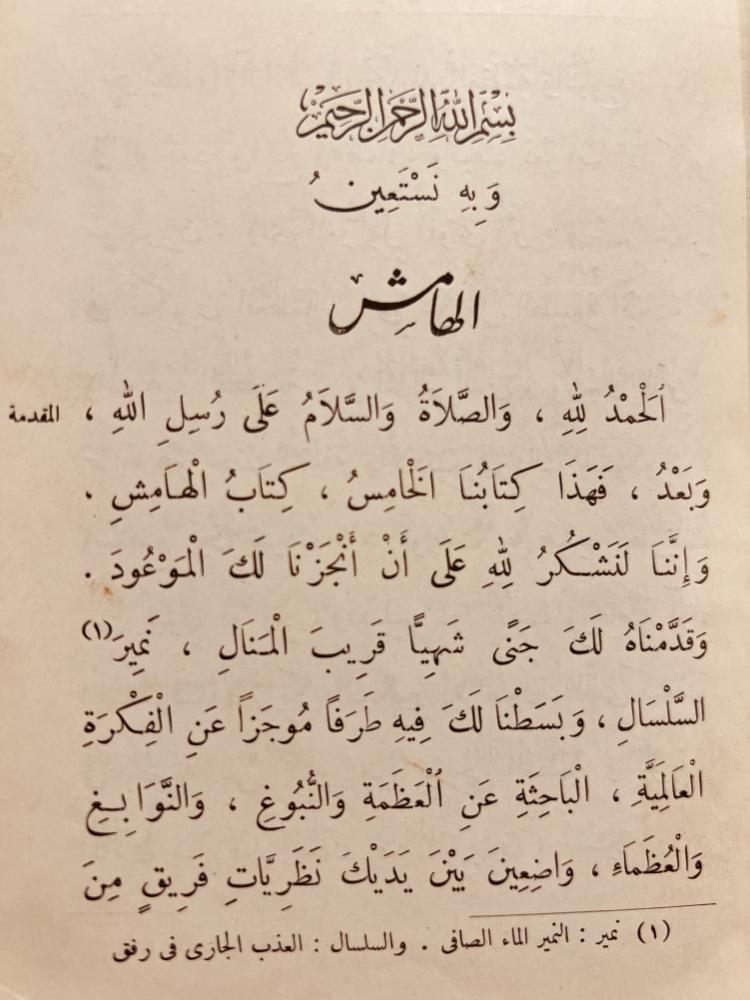 بِسْمِ اللهِ الرَّحْمٰنِ الرَّحِيْمِ
وَبِهِ نَسْتَعِينُ
الهامش
اَلْحَمْدُ لِلهِ ، وَالصَّلَاةُ وَالسَّلَامُ عَلَى رُسِلِ اللهِ ، المقدمة
وَبَعْدُ ، فَهَذَا كِتَابُنَا الْخَامِسُ ، كِتَابُ الْهَامِشِ .
وَإِنَّنَا لَنَشْكُرُ لِلهِ عَلَى أَنْ أَنْجَزْنَا لَكَ الْمَوْعُودَ .
وَقَدَّمْنَاهُ لَكَ جَنًى شَهِيًّا قَرِيبَ الْمَنَالِ ، نَمِيرَ(١)
السَّلْسَالِ ، وَبَسَطْنَا لَكَ فِيهِ طَرَفاً مُوجَزاً عَنِ الْفِكْرَةِ
الْعَالَمِيَّةِ ، الْبَاحِثَةِ عَنِ الْعَظَمَةِ وَالنُّبُوغِ ، وَالنَّوَابِغِ
وَالْعُظَمَاءِ ، وَاضِعِينَ بَيْنَ يَدَيْكَ نَظَرِيَّاتِ فَرِيقٍ مِنَ
(١) نمير : النمير الماء الصافى . والسلسال : العذب الجارى فى رفق